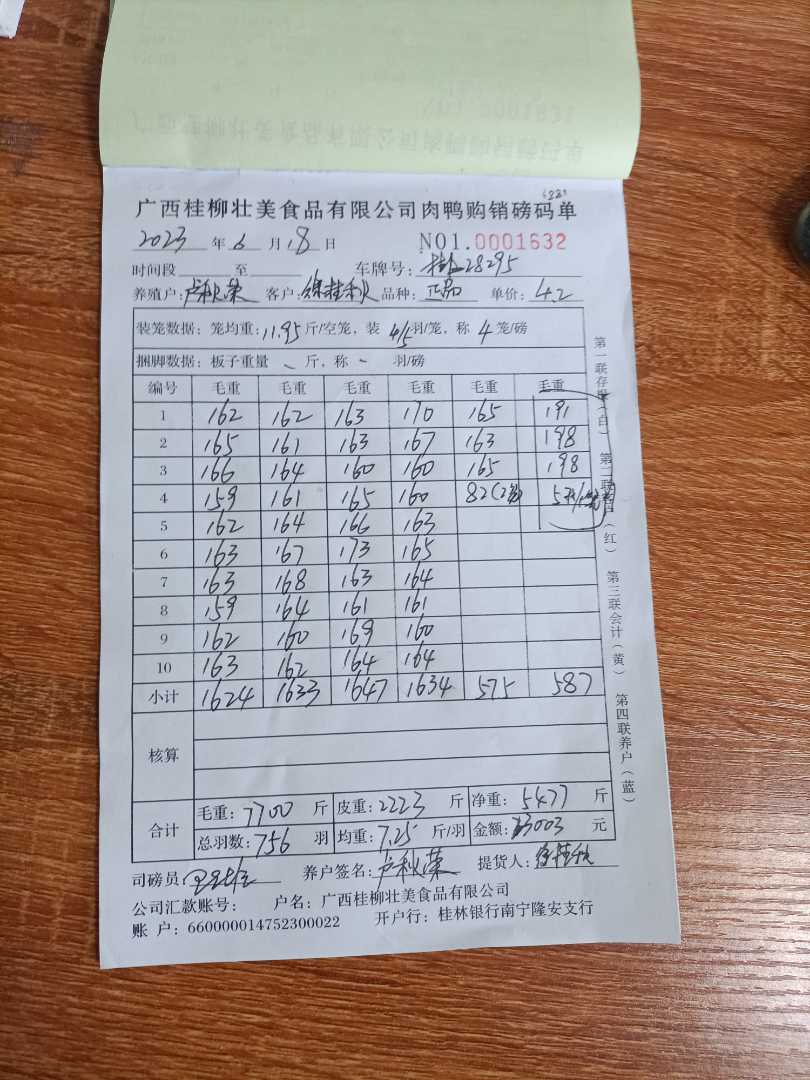 广西桂柳壮美食品有限公司肉鸭购销磅码单
2023 年 6 月 18 日 NO1.0001632
时间段 至 车牌号: 28295
养殖户: 卢秋荣 客户: 徐桂秋 品种: 正品 单价: 4.2
装笼数据: 笼均重: 11.95 斤/空笼, 装 4/5 羽/笼, 称 4 笼/磅
捆脚数据: 板子重量 - 斤, 称 - 羽/磅
编号 毛重 毛重 毛重 毛重 毛重 毛重
1 162 162 163 170 165 191
2 165 161 163 167 163 198
3 166 164 160 160 165 198
4 159 161 165 160 82(2笼) 5羽/笼
5 162 164 166 163
6 163 167 173 165
7 163 168 163 164
8 159 164 161 161
9 162 160 169 160
10 163 162 164 164
小计 1624 1633 1647 1634 575 587
核算
合计 毛重: 7700 斤 皮重: 2223 斤 净重: 5477 斤
总羽数: 756 羽 均重: 7.25 斤/羽 金额: 23003 元
司磅员: 养户签名: 卢秋荣 提货人: 徐桂秋
公司汇款账号: 户名: 广西桂柳壮美食品有限公司
账 户: 660000014752300022 开户行: 桂林银行南宁隆安支行
第一联存根(白) 第二联客户(红) 第三联会计(黄) 第四联养户(蓝)